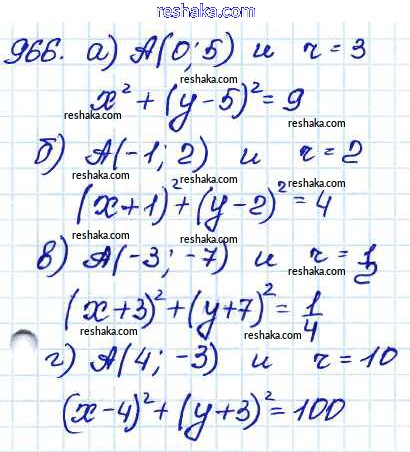 reshak.com
966. а) A(0; 5) и r = 3
reshaka.com
reshaka.com
x² + (y-5)² = 9
reshaka.com
reshaka.com
б) A(-1; 2) и r = 2
reshaka.com
reshaka.com
(x+1)² + (y-2)² = 4
reshaka.com
в) A(-3; -7) и r = 1/2
reshaka.com
reshaka.com
(x+3)² + (y+7)² = 1/4
reshaka.com
reshaka.com
г) A(4; -3) и r = 10
reshaka.com
(x-4)² + (y+3)² = 100